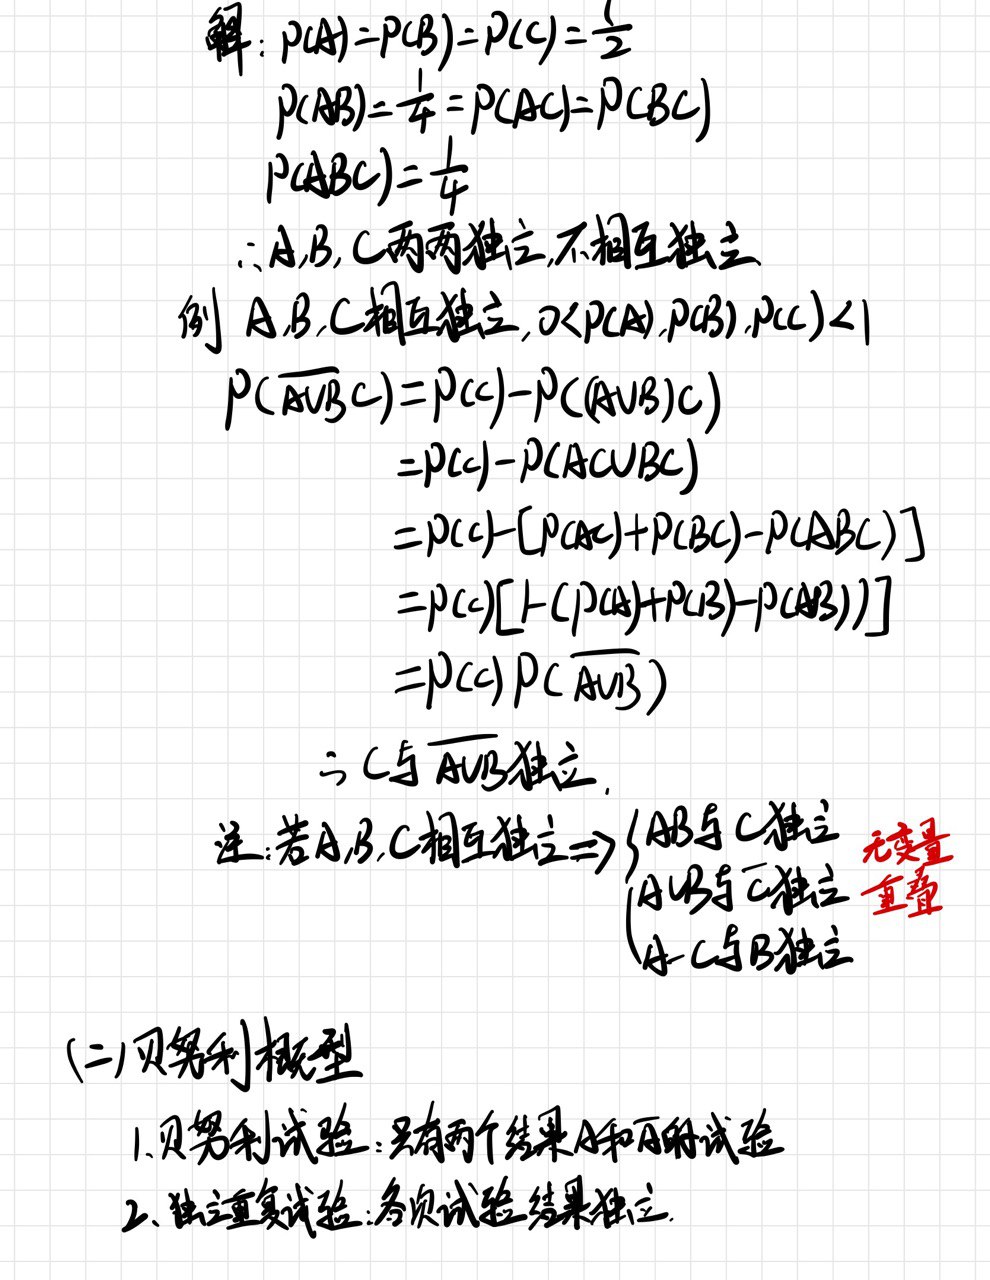 解: P(A)=P(B)=P(C)=1/2
P(AB)=1/4=P(AC)=P(BC)
P(ABC)=1/4
∴A,B,C两两独立,不相互独立
例 A,B,C相互独立,0<P(A),P(B),P(C)<1
P(\overline{A∪B}C)=P(C)-P((A∪B)C)
=P(C)-P(AC∪BC)
=P(C)-[P(AC)+P(BC)-P(ABC)]
=P(C)[1-(P(A)+P(B)-P(AB))]
=P(C)P(\overline{A∪B})
∴C与\overline{A∪B}独立.
注:若A,B,C相互独立=>{AB与C独立
A∪B与\overline{C}独立
A-C与B独立
无变量
重叠
(二)贝努利概型
1.贝努利试验:只有两个结果A和\overline{A}的试验
2、独立重复试验:各次试验结果独立.